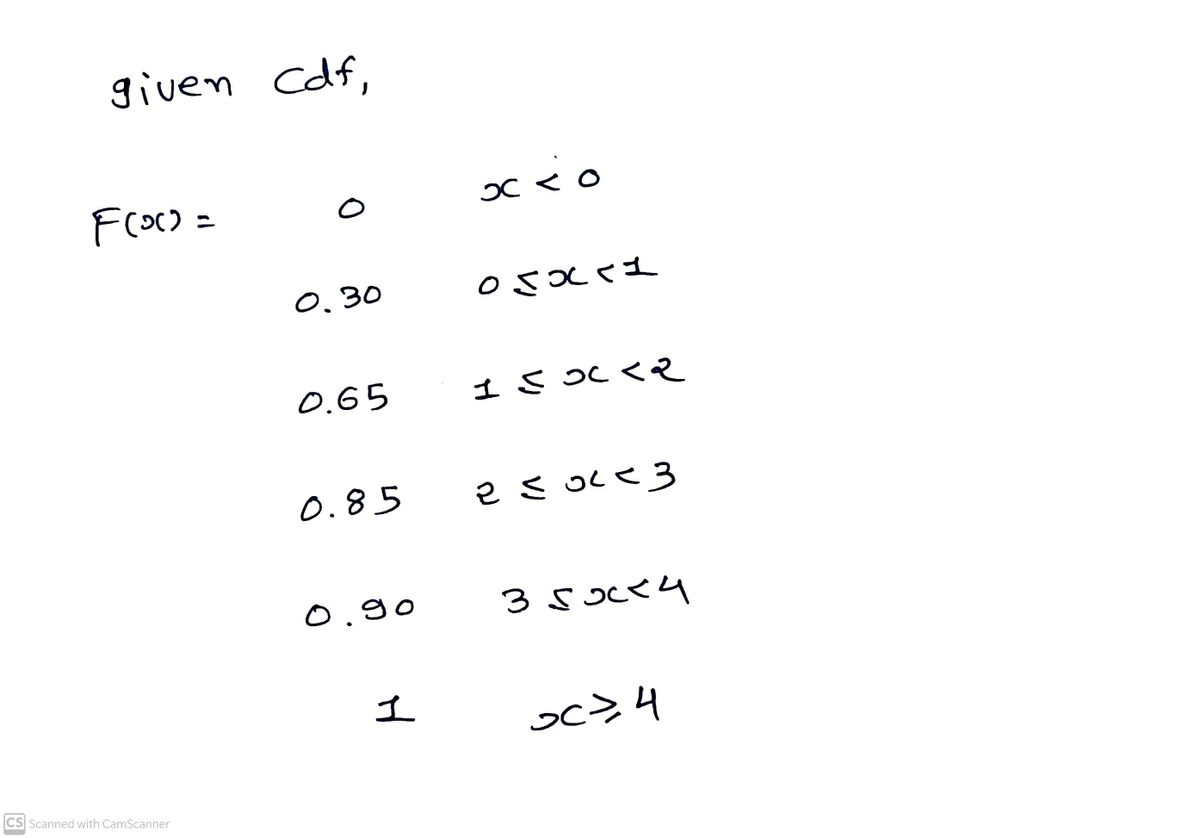 given cdf,
F(x) = 0 x < 0
0.30 0 ≤ x < 1
0.65 1 ≤ x < 2
0.85 2 ≤ x < 3
0.90 3 ≤ x < 4
1 x ≥ 4
CS Scanned with CamScanner